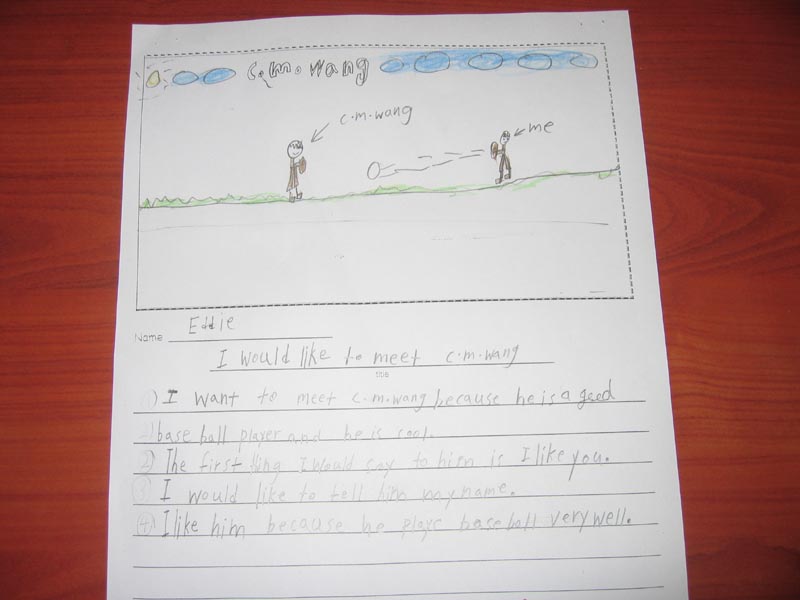 c.m.wang
c.m.wang
me
Name Eddie
I would like to meet c.m.wang
title
1) I want to meet c.m.wang because he is a good
base ball player and he is cool.
2) The first thing I would say to him is I like you.
3) I would like to tell him my name.
4) I like him because he plays base ball very well.